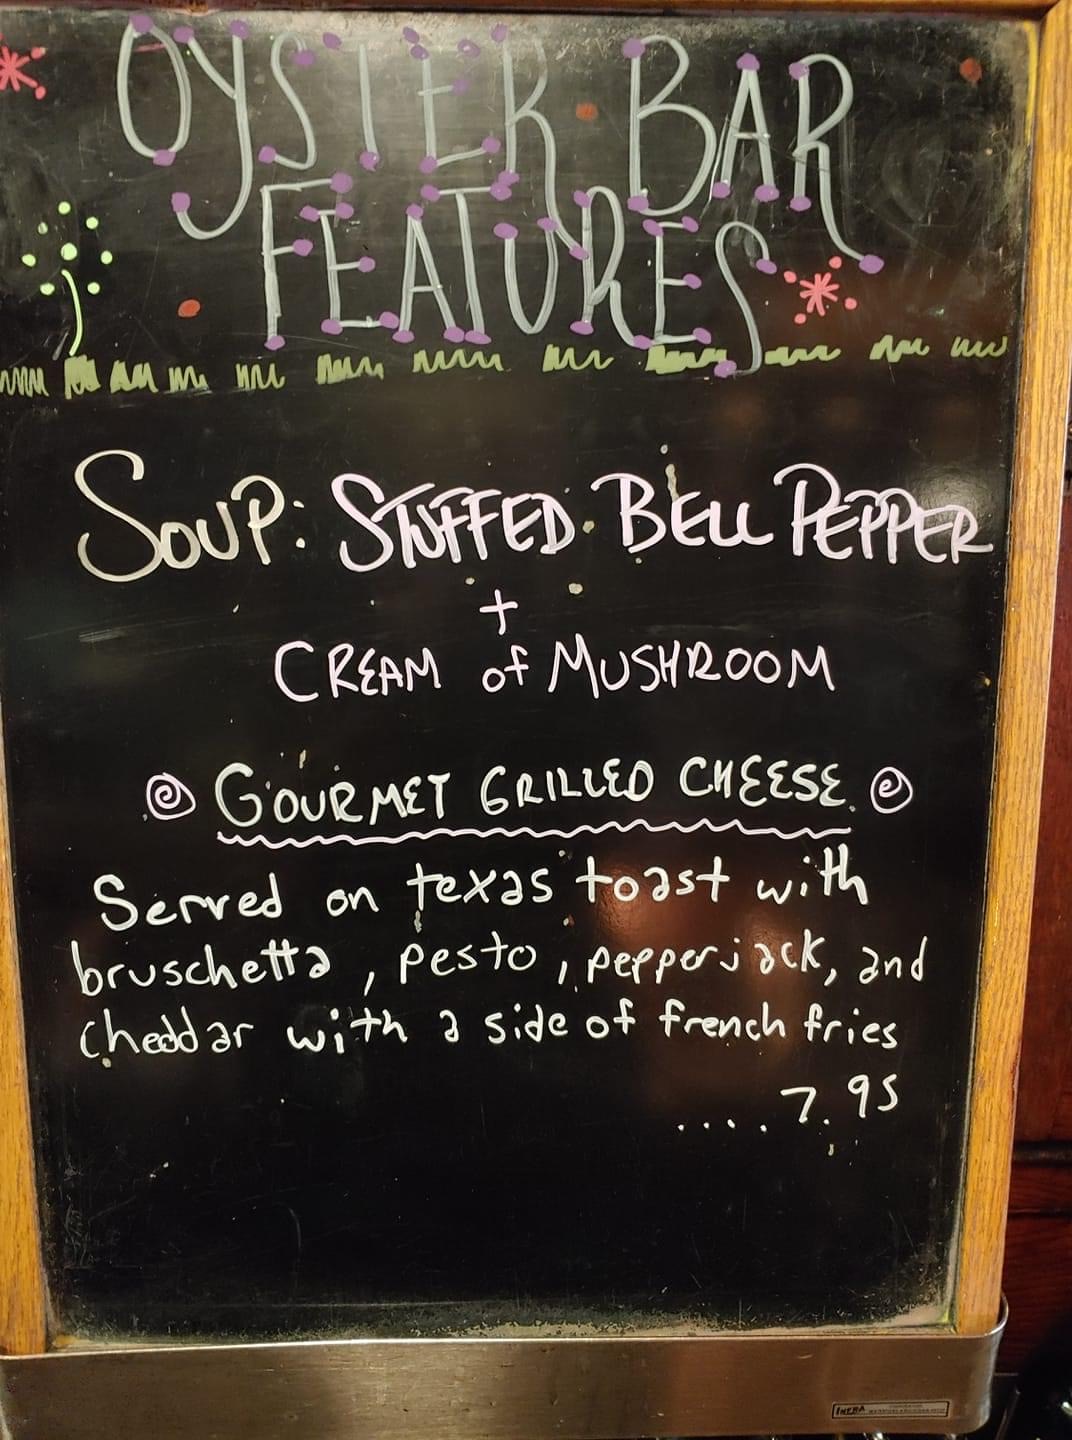 OYSTER BAR
FEATURES
SOUP: STUFFED BELL PEPPER
+
CREAM of MUSHROOM
GOURMET GRILLED CHEESE
Served on texas toast with
bruschetta, pesto, pepperjack, and
cheddar with a side of french fries
.... 7.95
INFRA